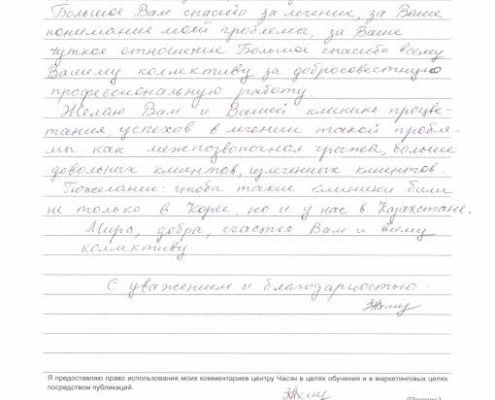 Большое Вам спасибо за лечение, за Ваше
понимание моей проблемы, за Ваше
чуткое отношение Большое спасибо всему
Вашему коллективу за добросовестную
профессиональную работу.
Желаю Вам и Вашей клинике процве-
тания, успехов в лечении такой пробле-
мы как межпозвоночная грыжа, больше
довольных клиентов, излеченных клиентов.
Пожелание: чтобы такие клиники были
не только в Корее, но и у нас в Казахстане.
Мира, добра, счастья Вам и всему
коллективу.
С уважением и благодарностью
Я предоставляю право использования моих комментариев центру Часэн в целях обучения и в маркетинговых целях
посредством публикаций.